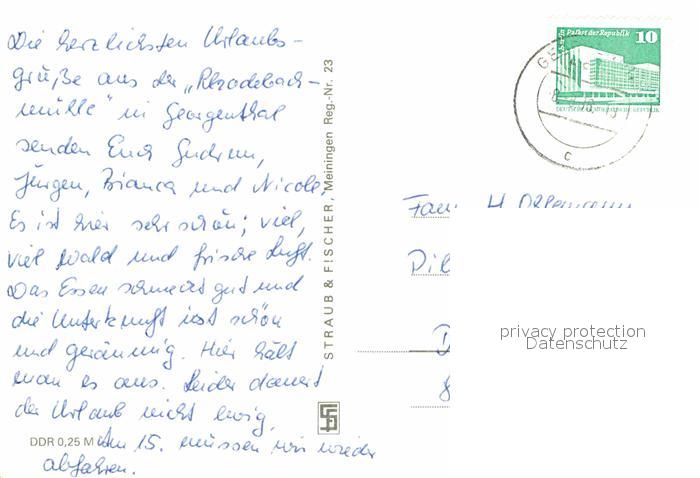 Die herzlichsten Urlaubs-
grüße aus der „Rhodebach-
mühle" in Georgenthal
senden Euch Gudrun,
Jürgen, Bianca und Nicole.
Es ist hier sehr schön; viel,
viel Wald und frische Luft.
Das Essen schmeckt gut und
die Unterkunft ist schön
und geräumig. Hier hält
man es aus. Leider dauert
der Urlaub nicht ewig.
Am 15. müssen wir wieder
abfahren.
DDR 0,25 M
STRAUB & FISCHER, Meiningen Reg.-Nr. 23
Palast der Republik
10
DEUTSCHE DEMOKRATISCHE REPUBLIK
c
Fam.
privacy protection
Datenschutz